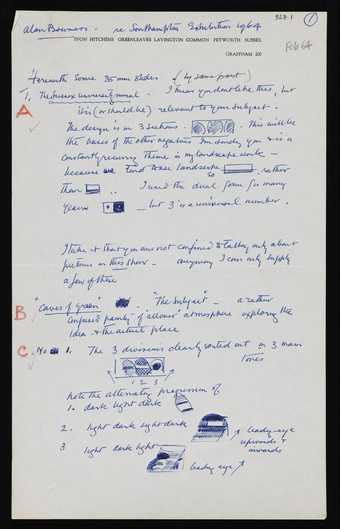 328.1 ①
Alan Bowness - re Southampton Exhibition 1964
IVON HITCHENS GREENLEAVES LAVINGTON COMMON PETWORTH SUSSEX
GRAFFHAM 200
Feb 64
Herewith some 35 mm slides
1. The Sussex University mural - I hear you don't like this, but
A
it is (or should be) relevant to your subject.
The design is in 3 sections - This will be
the basis of the other
constantly recurring theme in my landscape work -
because landscape rather
than I used the dual form for many
years but 3 is a universal number.
I take it that you are not confined to talking only about
pictures in this show - anyway I can only supply
a few of these
B "Caves of Green" - "The Subject" - a rather
confused family of allover atmosphere exploring the
idea & the actual place
C No 1. The 3 divisions clearly sorted out in 3 main
tones
1 2 3
Note the alternating progression of
1. dark light dark
2. light dark light dark
leads eye
upwards &
inwards
3 light dark light
leads eye